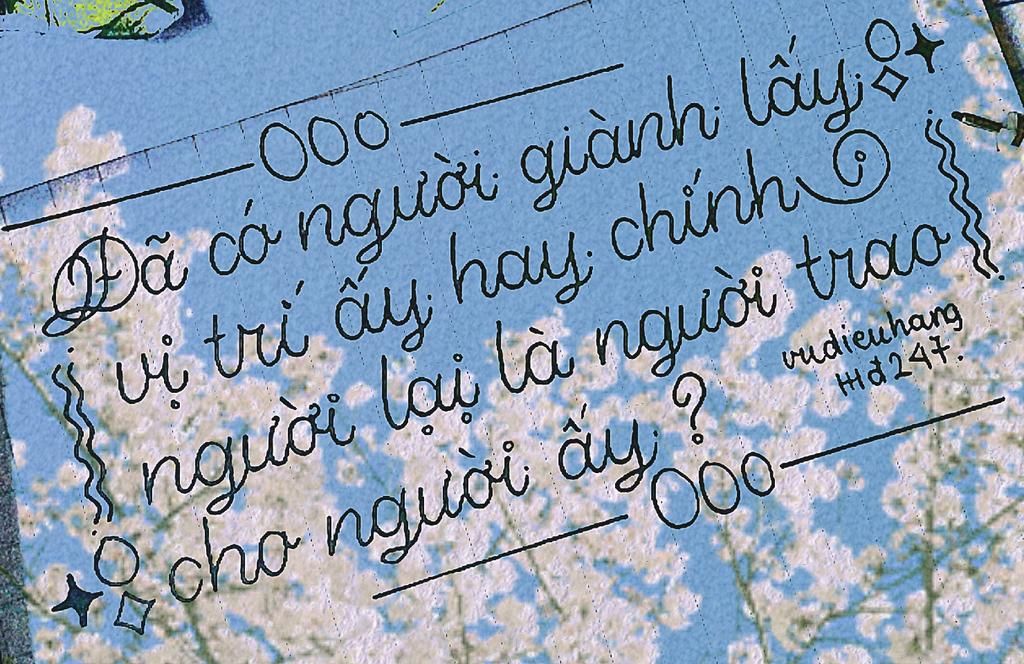 Đã có người giành lấy
vị trí ấy hay chính
người lại là người trao
cho người ấy ?
vudieuhang